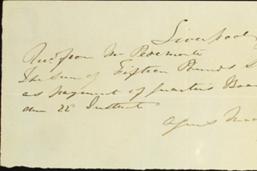 Liverpool
Recd from Mr Benmonts
The sum of Fifteen Pounds S
as payment of quarters Boa
due 22 Instant
Agnes